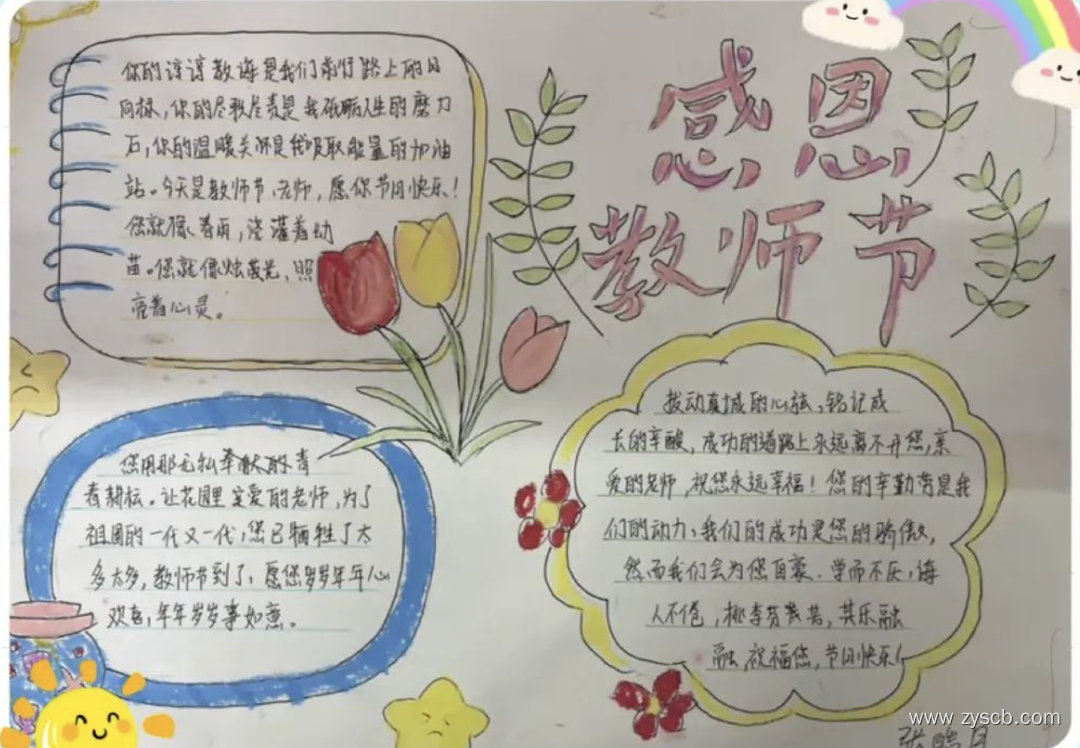 感恩
教师节
你的谆谆教诲是我们前行路上的目
向标，你的尽职尽责是我砥砺人生的磨力
石，你的温暖关怀是我吸取能量的加油
站。今天是教师节，老师，愿你节日快乐！
您就像春雨，浇灌着幼
苗。您就像烛光，照
亮着心灵。
您用那无私奉献的青
春耕耘。让花园里 爱的老师，为了
祖国的一代又一代，您已牺牲了太
多太多，教师节到了，愿您岁岁年年心
欢喜，年年岁岁事如意。
拨动真诚的心弦，铭记成
长的辛酸，成功的道路上永远离不开您，亲
爱的老师，祝您永远幸福！您的辛勤劳是我
们的动力，我们的成功是您的骄傲，
然而我们会为您自豪．学而不厌，诲
人不倦，桃李芬芳，其乐融
融，祝福您，节日快乐！
www.zyscb.com